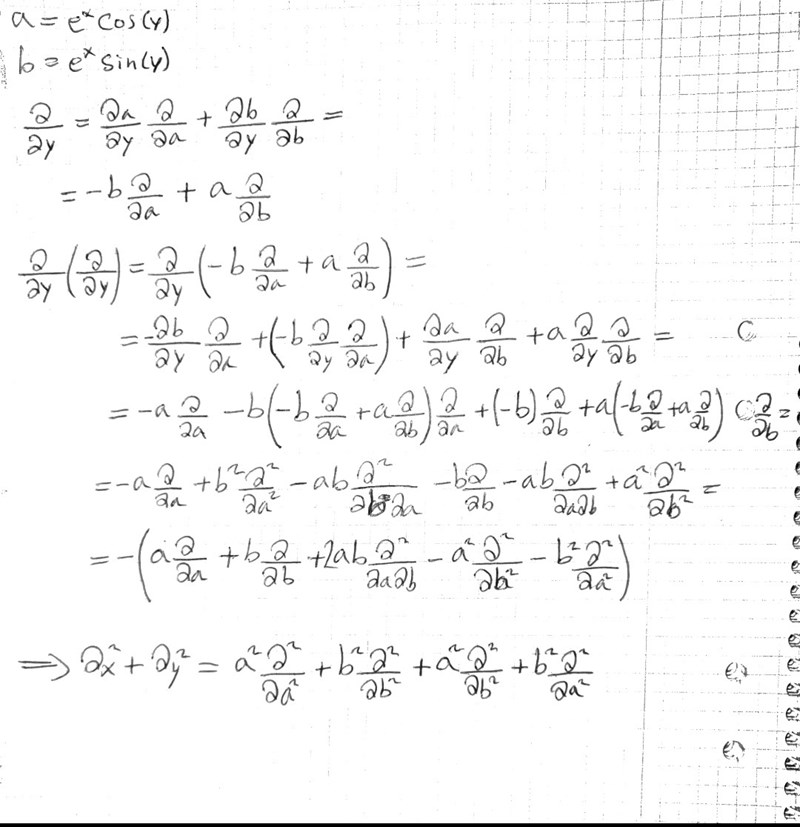 a = eˣ cos(y)
b = eˣ sin(y)
∂/∂y = ∂a/∂y ∂/∂a + ∂b/∂y ∂/∂b =
= -b ∂/∂a + a ∂/∂b
∂/∂y (∂/∂y) = ∂/∂y (-b ∂/∂a + a ∂/∂b) =
= -∂b/∂y ∂/∂a + (-b ∂/∂y ∂/∂a) + ∂a/∂y ∂/∂b + a ∂/∂y ∂/∂b =
= -a ∂/∂a - b(-b ∂/∂a + a ∂/∂b) ∂/∂a + (-b) ∂/∂b + a(-b ∂/∂a + a ∂/∂b) ∂/∂b =
= -a ∂/∂a + b² ∂²/∂a² - ab ∂²/∂b∂a - b∂/∂b - ab ∂²/∂a∂b + a² ∂²/∂b² =
= -(a ∂/∂a + b ∂/∂b + 2ab ∂²/∂a∂b - a² ∂²/∂b² - b² ∂²/∂a²)
⟹ ∂x² + ∂y² = a² ∂²/∂a² + b² ∂²/∂b² + a² ∂²/∂b² + b² ∂²/∂a²